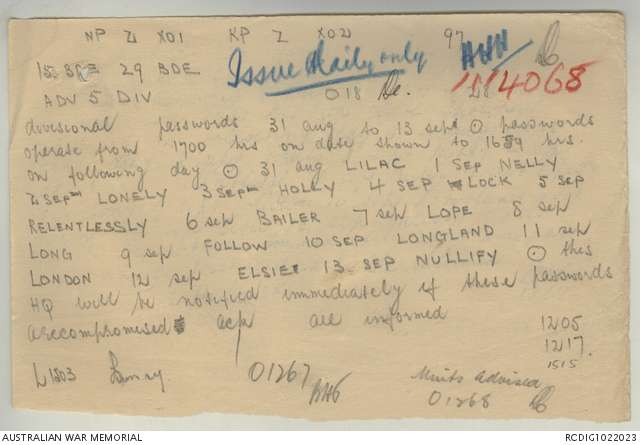 NP Z X01 KP Z X02 97
15 BDE 29 BDE Issue Daily only AHH
114068
ADV 5 DIV 018 De. 28
divisional passwords 31 aug to 13 sept ⊙ passwords
operate from 1700 hrs on date shown to 1659 hrs.
on following day ⊙ 31 aug LILAC 1 SEP NELLY
2 SEP LONELY 3 SEP HOLLY 4 SEP LOCK 5 SEP
RELENTLESSLY 6 sep BAILER 7 sep LOPE 8 sep
LONG 9 sep FOLLOW 10 SEP LONGLAND 11 sep
LONDON 12 sep ELSIE 13 SEP NULLIFY ⊙ this
HQ will be notified immediately if these passwords
are compromised ack all informed 1205
1217.
1515
L1803 01267 Units advised
01268
AUSTRALIAN WAR MEMORIAL RCDIG1022023